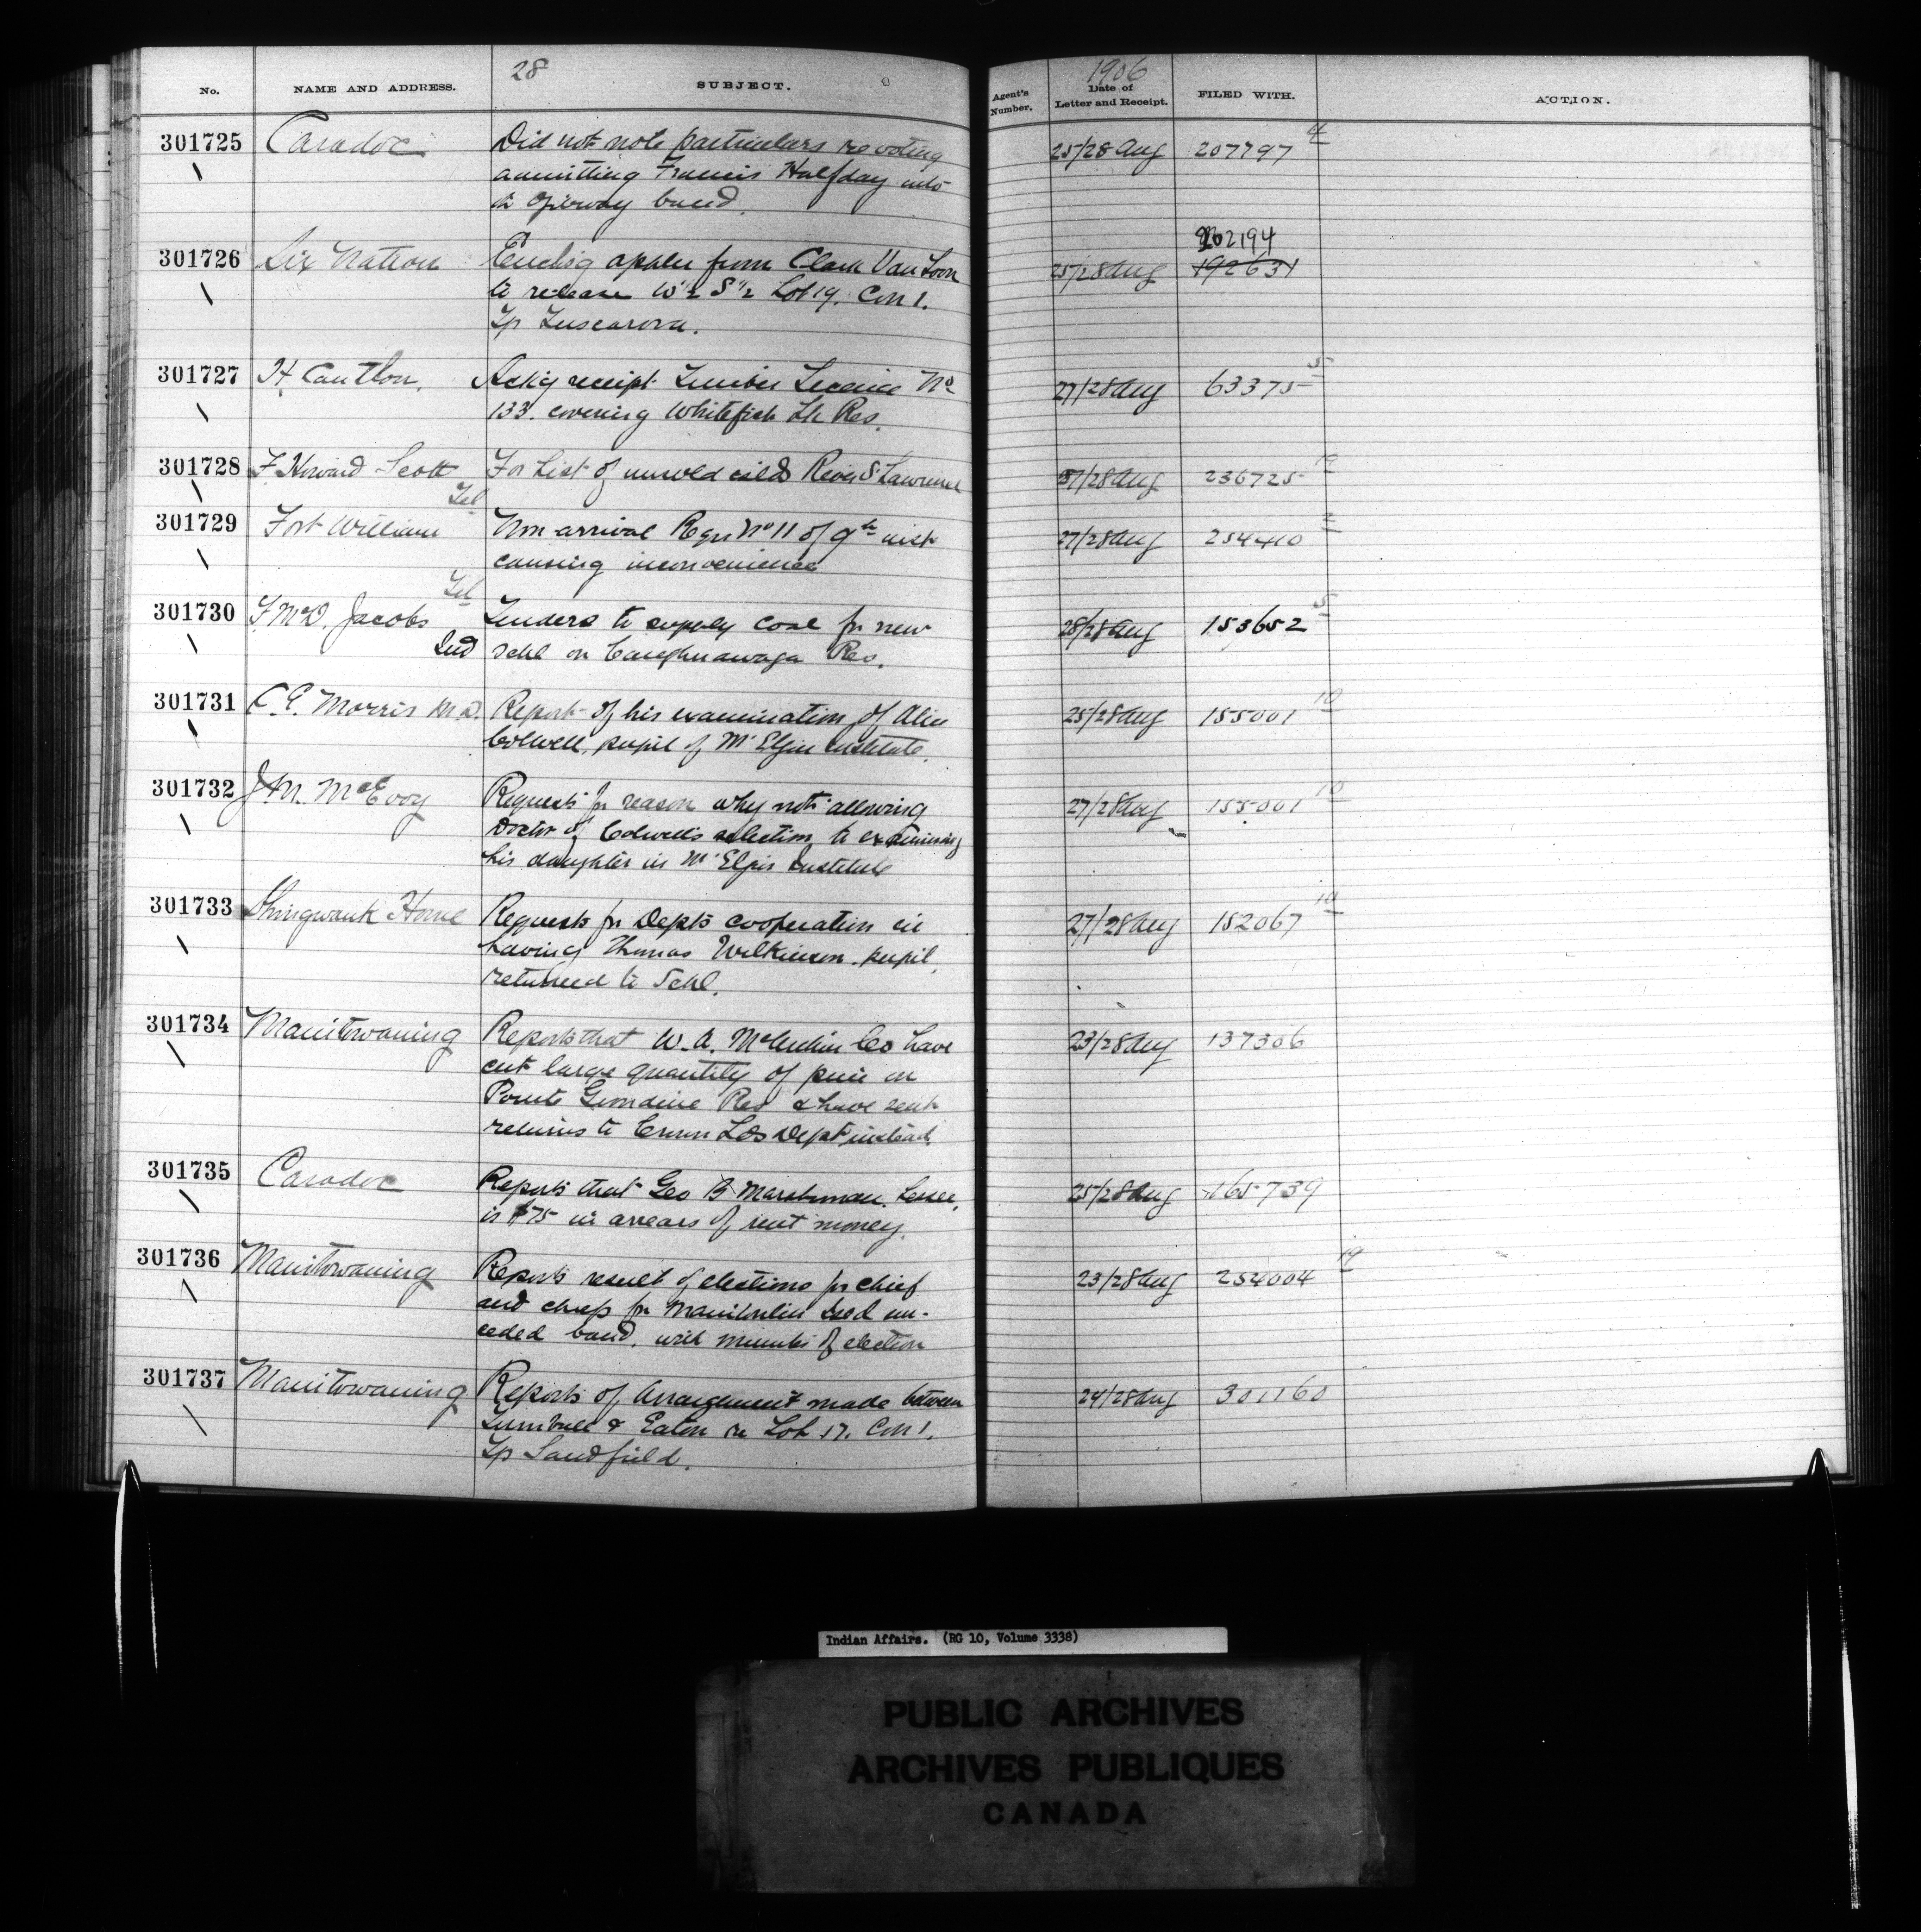 28
1906
No. NAME AND ADDRESS. SUBJECT. Agent's Number. Date of Letter and Receipt. FILED WITH. ACTION.
301725 Caradoc Did not note particulars re voting 25/28 Aug 207797 4
admitting Francis Halfday into
Ojibway band.
301726 Six Nation Enclsg applen from Clark Van Loon 25/28 Aug 202194 192631
to release W½ S½ Lot 19. Con 1.
Tp Tuscarora.
301727 H Cauthon. Ackg receipt Timber License No 27/28 Aug 63375 5
133. covering Whitefish Lk Res.
301728 F Howard Scott For List of unsold islds River St Lawrence 27/28 Aug 236725 19
Tel
301729 Fort William Non arrival Reqn No 11 of 9th inst 27/28 Aug 254410 2
causing inconvenience
Tel
301730 F. McD. Jacobs Tenders to supply coal for new 28/28 Aug 153652 5
Ind schl on Caughnawaga Res.
301731 C. E. Morris M.D. Report of his examination of Alice 25/28 Aug 155001 10
Colwell, pupil of Mt Elgin Institute.
301732 J.M. McEvoy Requests for reason why not allowing 27/28 Aug 155001 10
Doctor of Colwell's selection to examining
his daughter in Mt Elgin Institute
301733 Shingwauk Home Requests for Depts cooperation in 27/28 Aug 152067 10
having Thomas Wilkinson. pupil,
returned to Schl.
301734 Manitowaning Reports that W. A. Co have 23/28 Aug 137306
cut large quantity of pine on
Pointe Grondine Res & have sent
returns to Crown Lds Dept instead.
301735 Caradoc Reports that Geo B Marshman. Lessee, 25/28 Aug 165739
is $75 in arrears of rent money.
301736 Manitowaning Reports result of elections for chief 23/28 Aug 254004 19
and chiefs for Manitoulin Isld un-
ceded band, with minutes of election
301737 Manitowaning Reports of Arrangement made between 24/28 Aug 301160
Turnbull & Eaton re Lot 17. Con 1.
Tp Sandfield.
Indian Affairs. (RG 10, Volume 3338)
PUBLIC ARCHIVES
ARCHIVES PUBLIQUES
CANADA